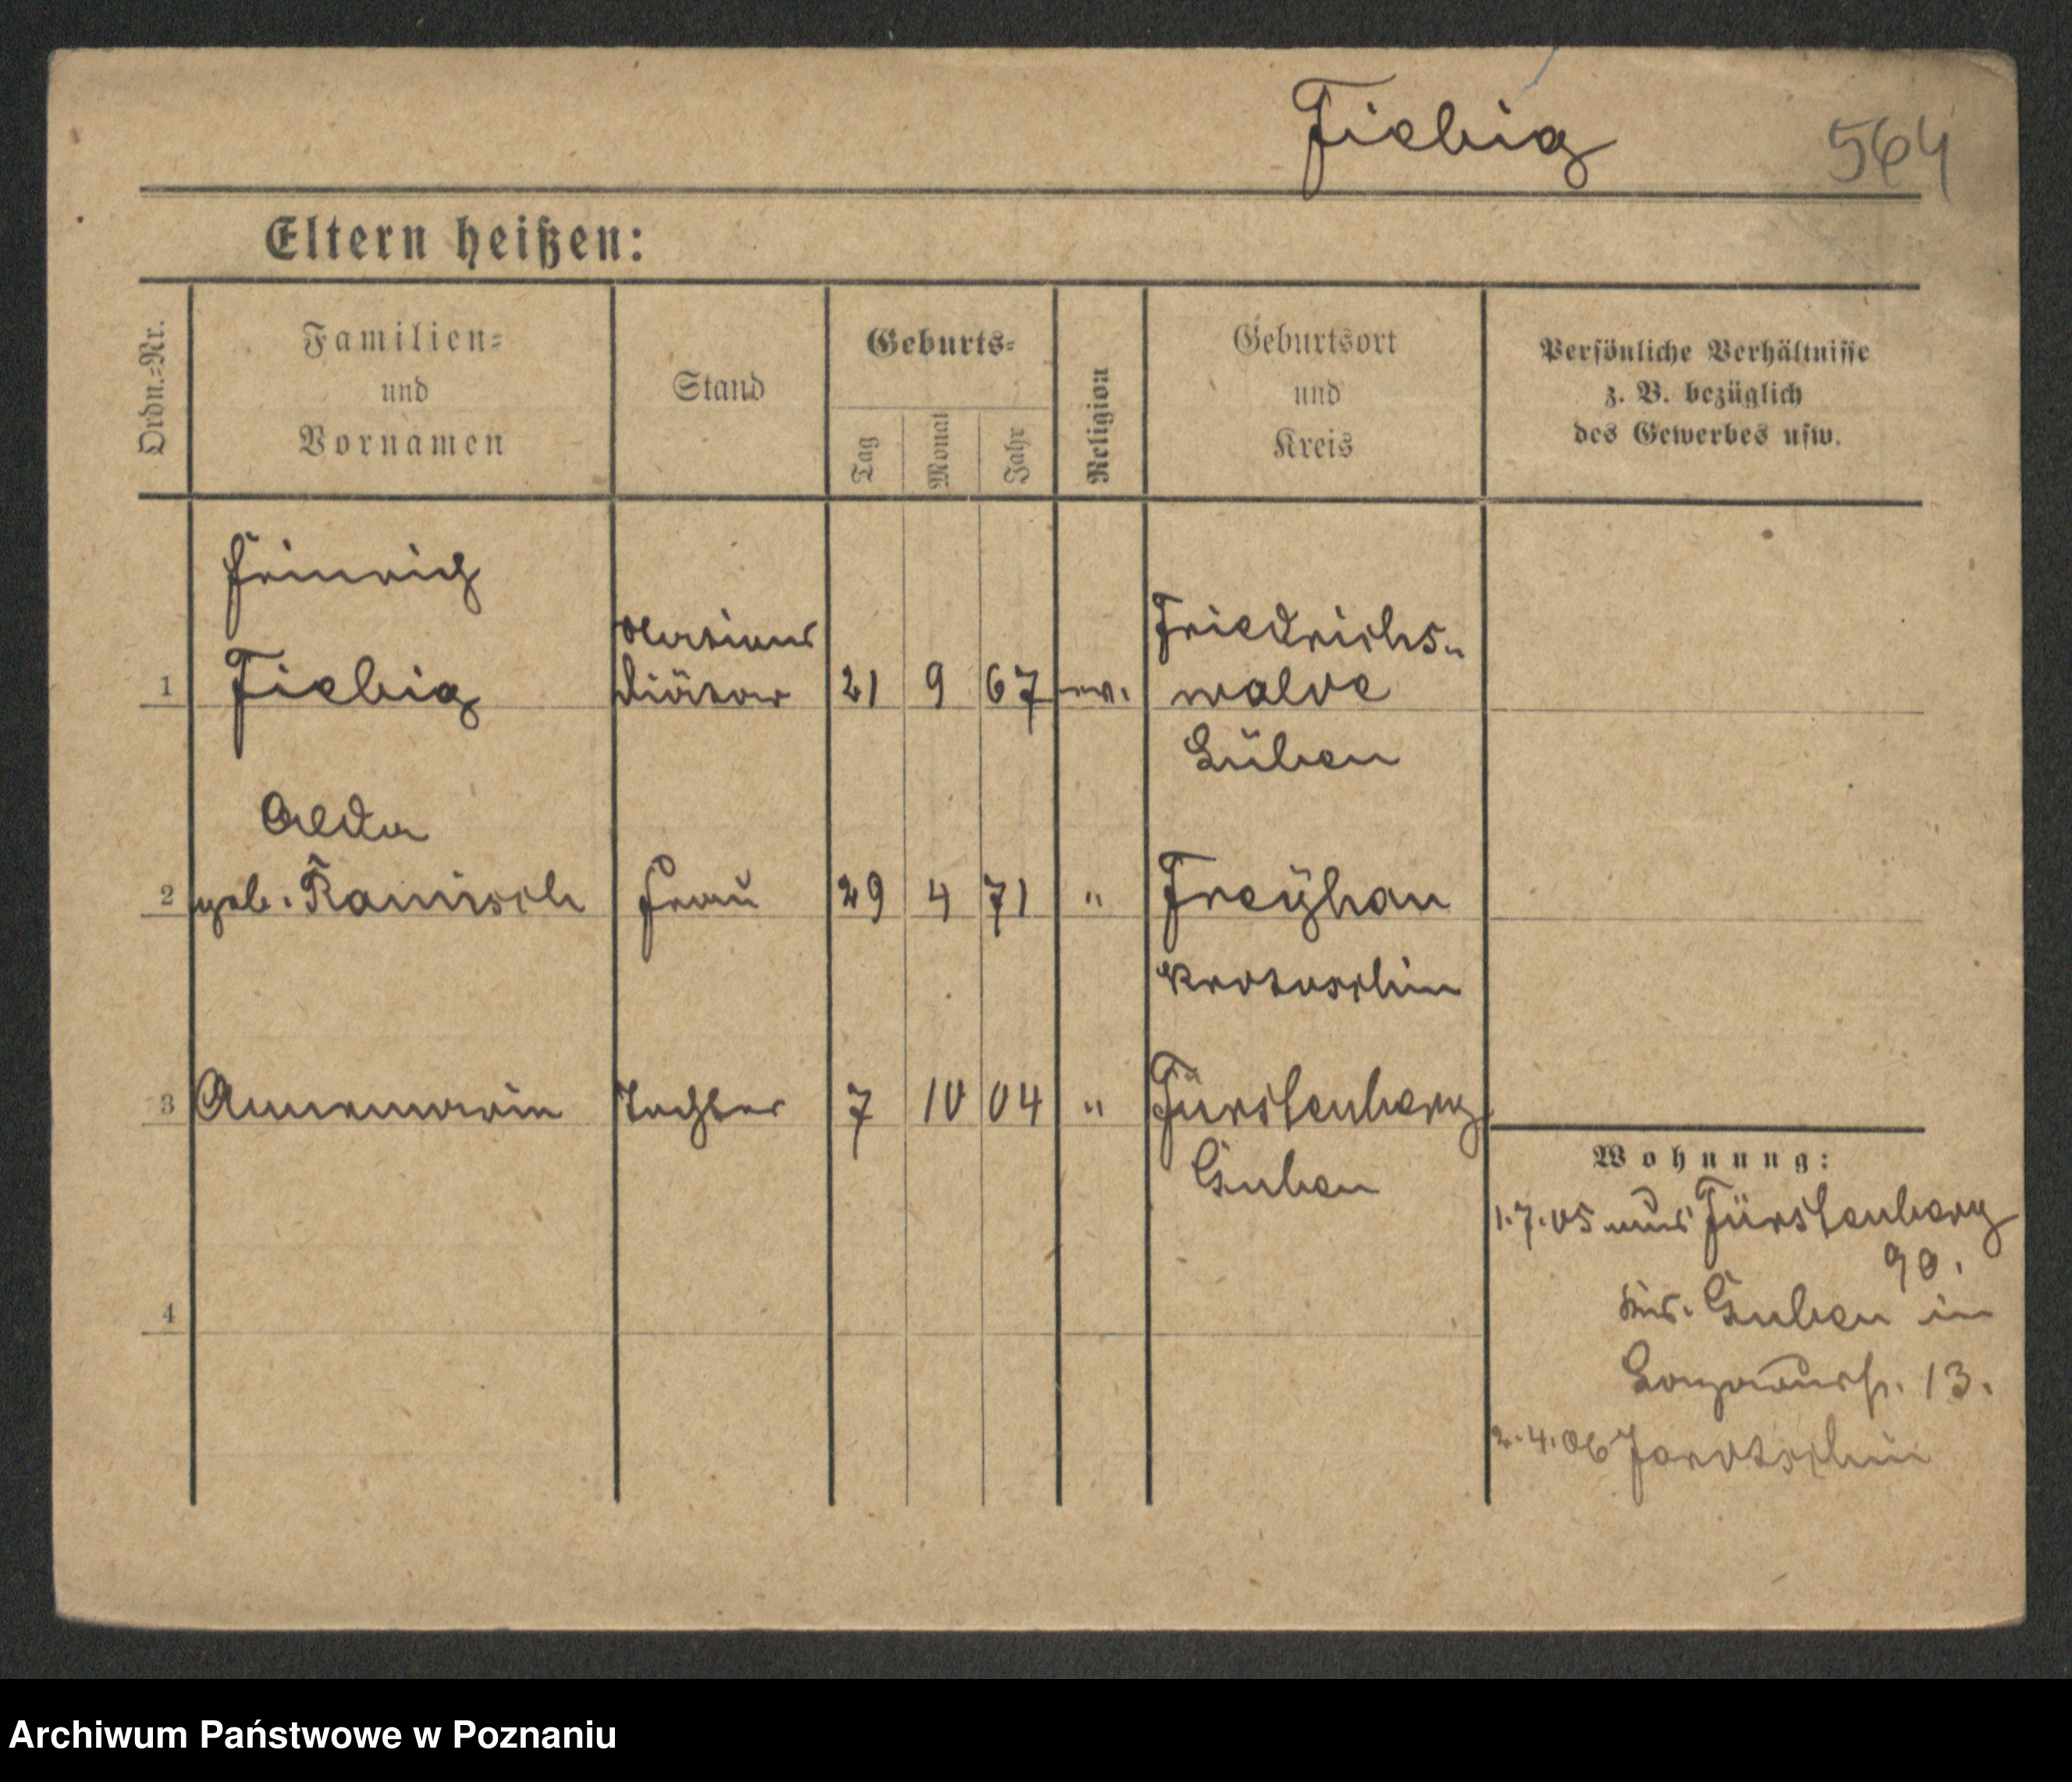 Fiebig 564
Eltern heißen:
Ordn.=Nr.
Familien=
und
Vornamen
Stand
Geburts=
Tag
Monat
Jahr
Religion
Geburtsort
und
Kreis
Persönliche Verhältnisse
z. B. bezüglich
des Gewerbes usw.
Heinrich
Stations
Friedrichs-
1 Fiebig Diätar 21 9 67 ev. walde
Lüben
Alda
2 geb. Ramisch Frau 29 4 71 " Freÿhan
Krotoschin
3 Annemarie Tochter 7 10 04 " Fürstenberg
Guben
4
Wohnung:
1.7.05 aus Fürstenberg
90.
Krs. Guben in
13.
2.4.06 Jarotschin
Archiwum Państwowe w Poznaniu